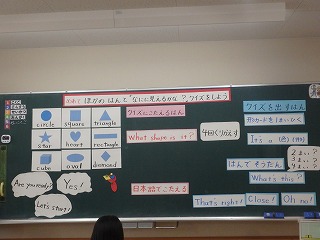 ほかのはんと"なにに見えるかな?"クイズをしよう
circle
square
triangle
star
heart
rectangle
cube
oval
diamond
Are you ready?
Yes!
Let's start!
クイズにこたえるはん
What shape is it?
4回くりかえす
日本語でこたえる
クイズを出すはん
形カードを1まいひく
It's a (色) (形)
2まい。
3まい。
4まい。
はんでそうだん
What's this?
That's right!
Close!
Oh no!